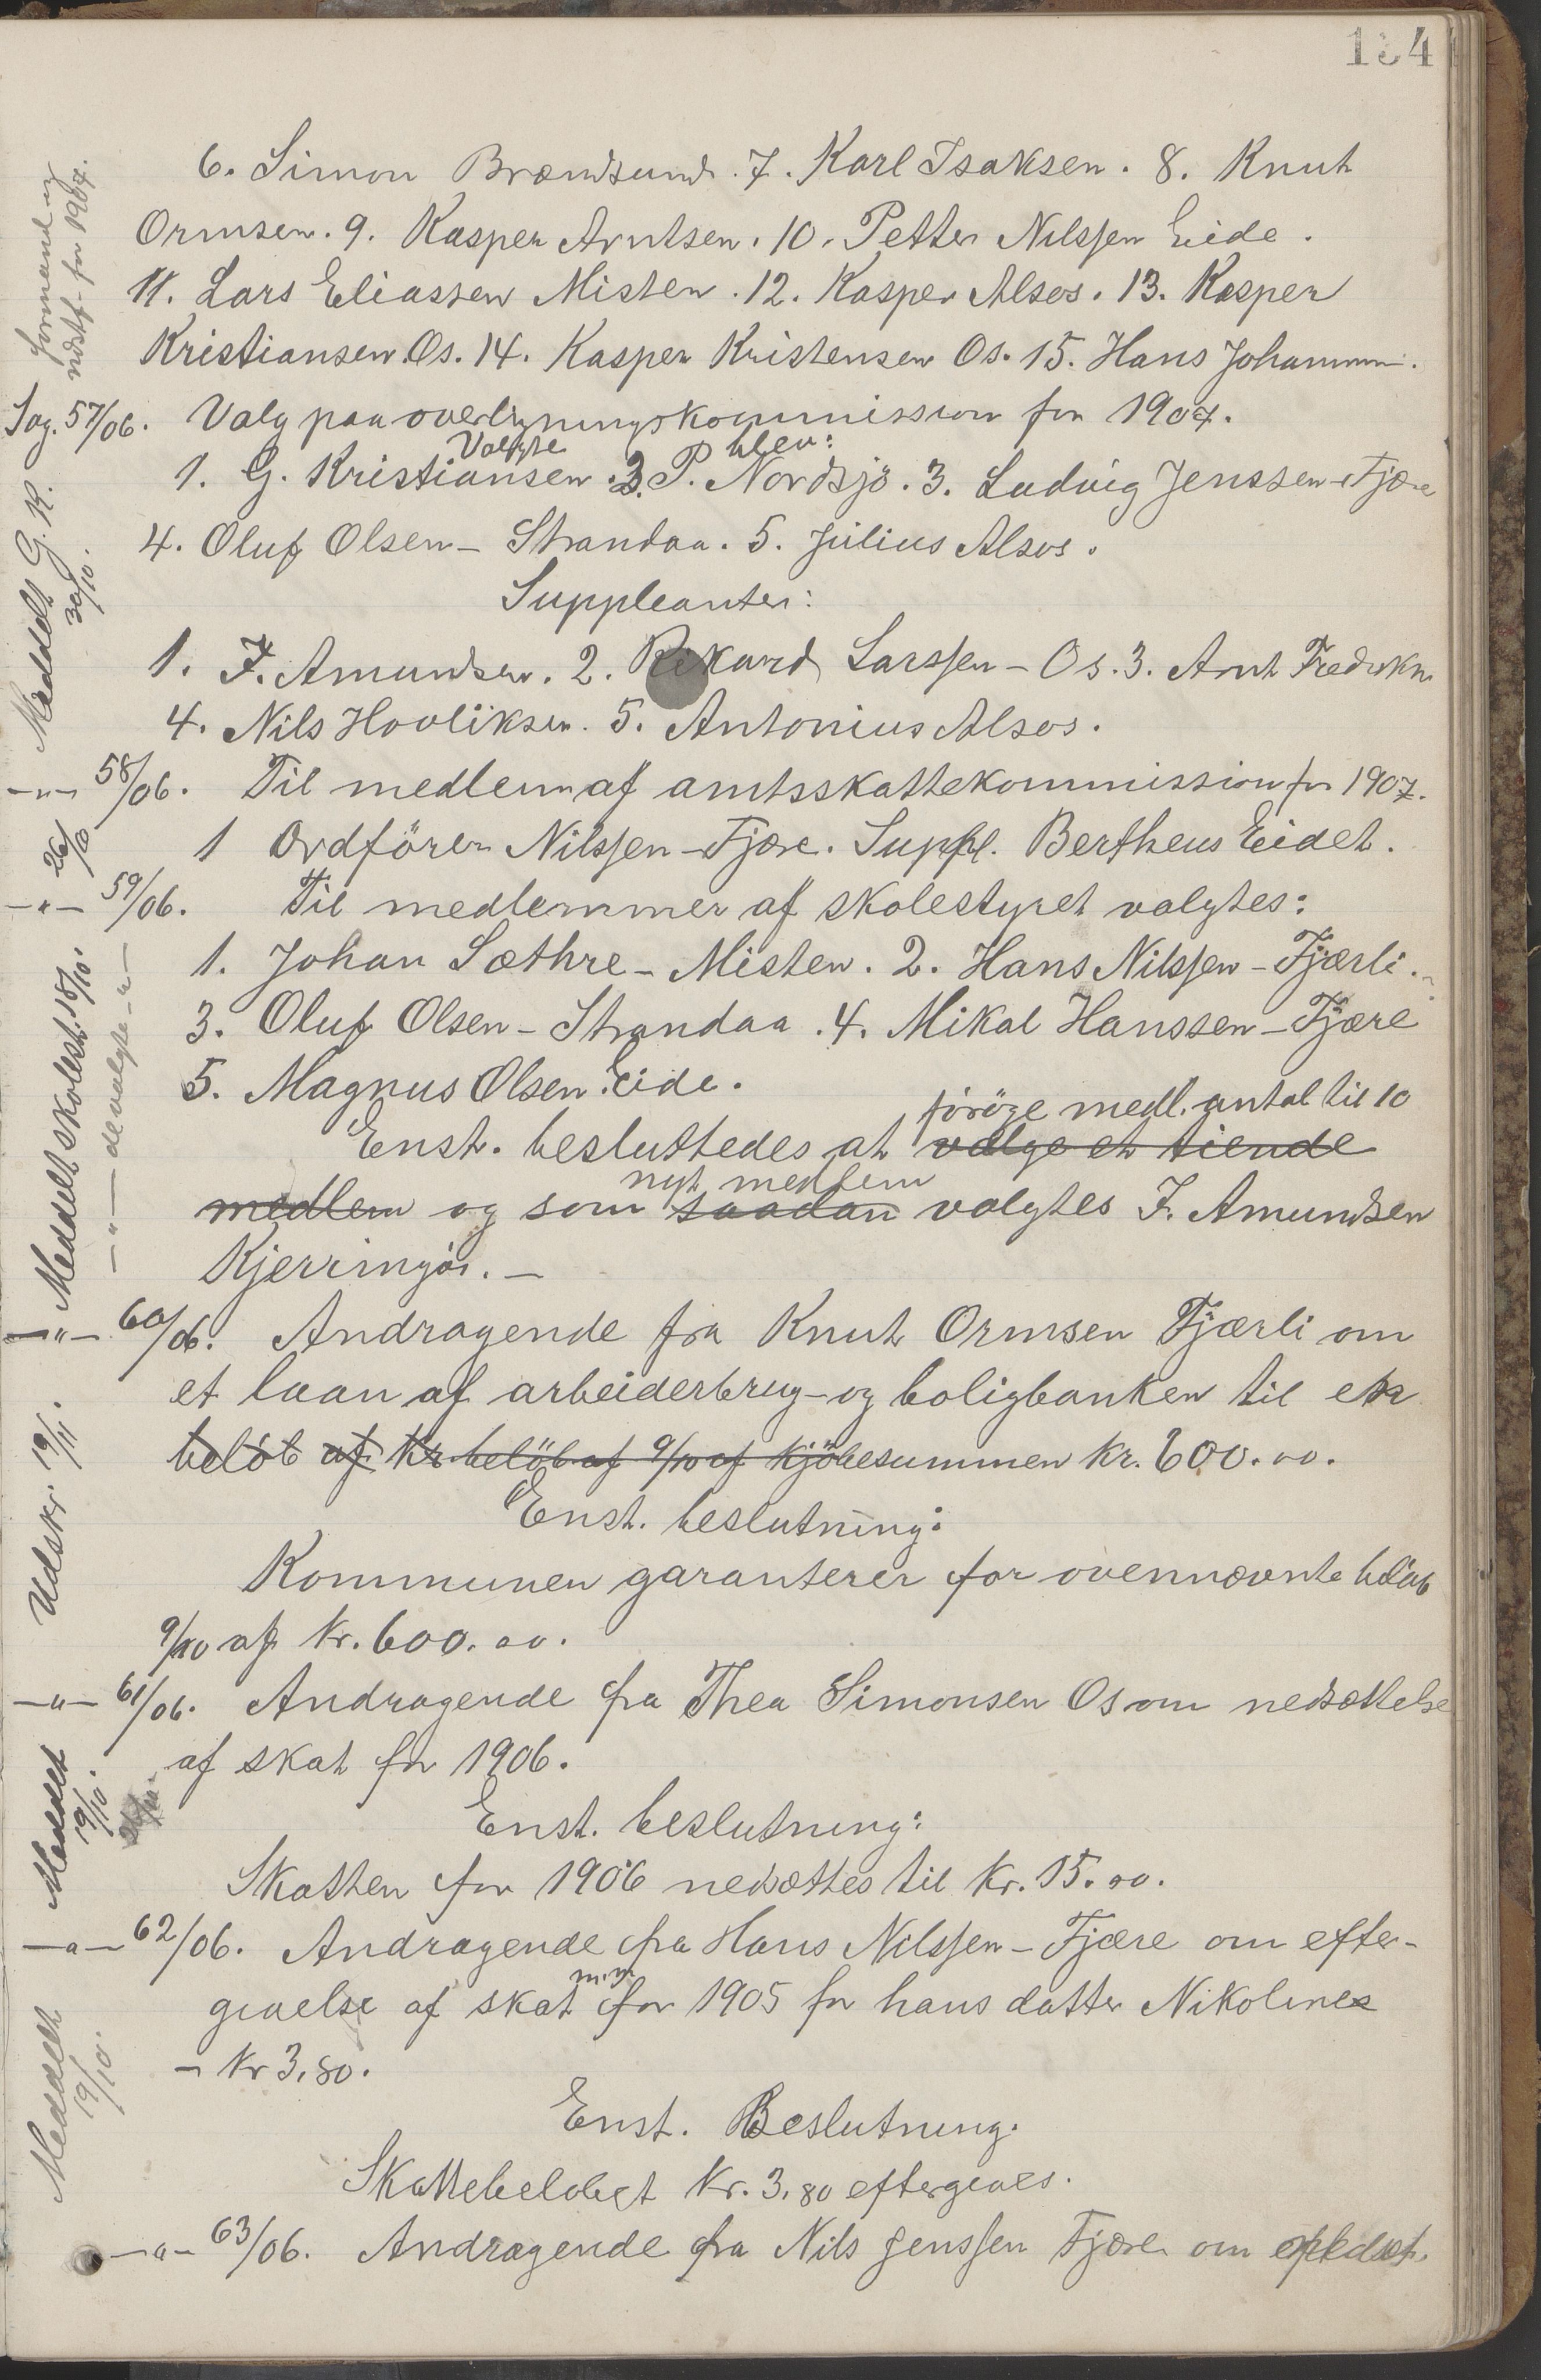 134
6. Simon Brændsund. 7. Karl Isaksen. 8. Knut
Ormsen. 9. Kasper Arntsen. 10. Petter Nilssen Eide.
11. Lars Eliassen Misten. 12. Kasper Alsos. 13. Kasper
Kristiansen Os. 14. Kasper Kristensen Os. 15. Hans Johannsen.
formand og
indstf. for 1907.
Sag. 57/06. Valg paa overligningskommission for 1907.
Valgte blev:
1. G. Kristiansen. 2. P. Nordsjö. 3. Ludvig Jenssen-Fjære
4. Oluf Olsen - Strandaa. 5. Julius Alsos.
Suppleanter:
Meddelt G. K.
30/10.
1. F. Amundsen. 2. Rikard Larssen - Os. 3. Arnt Fredrikn.
4. Nils Hovliksen. 5. Antonius Alsos.
-"- 58/06. Til medlem af amtsskattekommission for 1907.
1 Ordförer Nilssen - Fjære. Suppl. Bertheus Eidet.
26/10
-"- 59/06. Til medlemmer af skolestyret valgtes:
1. Johan Sæthre - Misten. 2. Hans Nilssen - Fjærli.
3. Oluf Olsen - Strandaa. 4. Mikal Hanssen - Fjære
5. Magnus Olsen Eide.
Meddelt skolest. 18/10.
-"- de valgte -"-
foröge medl. antal til 10
Enst. besluttedes at vælge et tiende
nyt medlem
medlem og som saadan valgtes F. Amundsen
Kjerringöi. -
-"- 60/06. Andragende fra Knut Ormsen Fjærli om
et laan af arbeiderbrug- og boligbanken til
belöb af Kr. belöb af 9/10 af kjöbesummen kr. 600.00.
Enst. beslutning:
Udskr. 19/11.
Kommunen garanterer for ovennævnte belöb
9/10 af kr. 600.00.
-"- 61/06. Andragende fra Thea Simonsen Os om nedsættelse
af skat for 1906.
Enst. beslutning:
Meddelt
19/10.
Skatten for 1906 nedsættes til kr. 15.00.
-"- 62/06. Andragende fra Hans Nilssen - Fjære om efter-
m.m.
givelse af skat for 1905 for hans datter Nikoline
- kr 3,80.
Enst. Beslutning.
Meddelt
19/10.
Skattebelöbet kr. 3,80 eftergives.
-"- 63/06. Andragende fra Nils Jenssen Fjære om